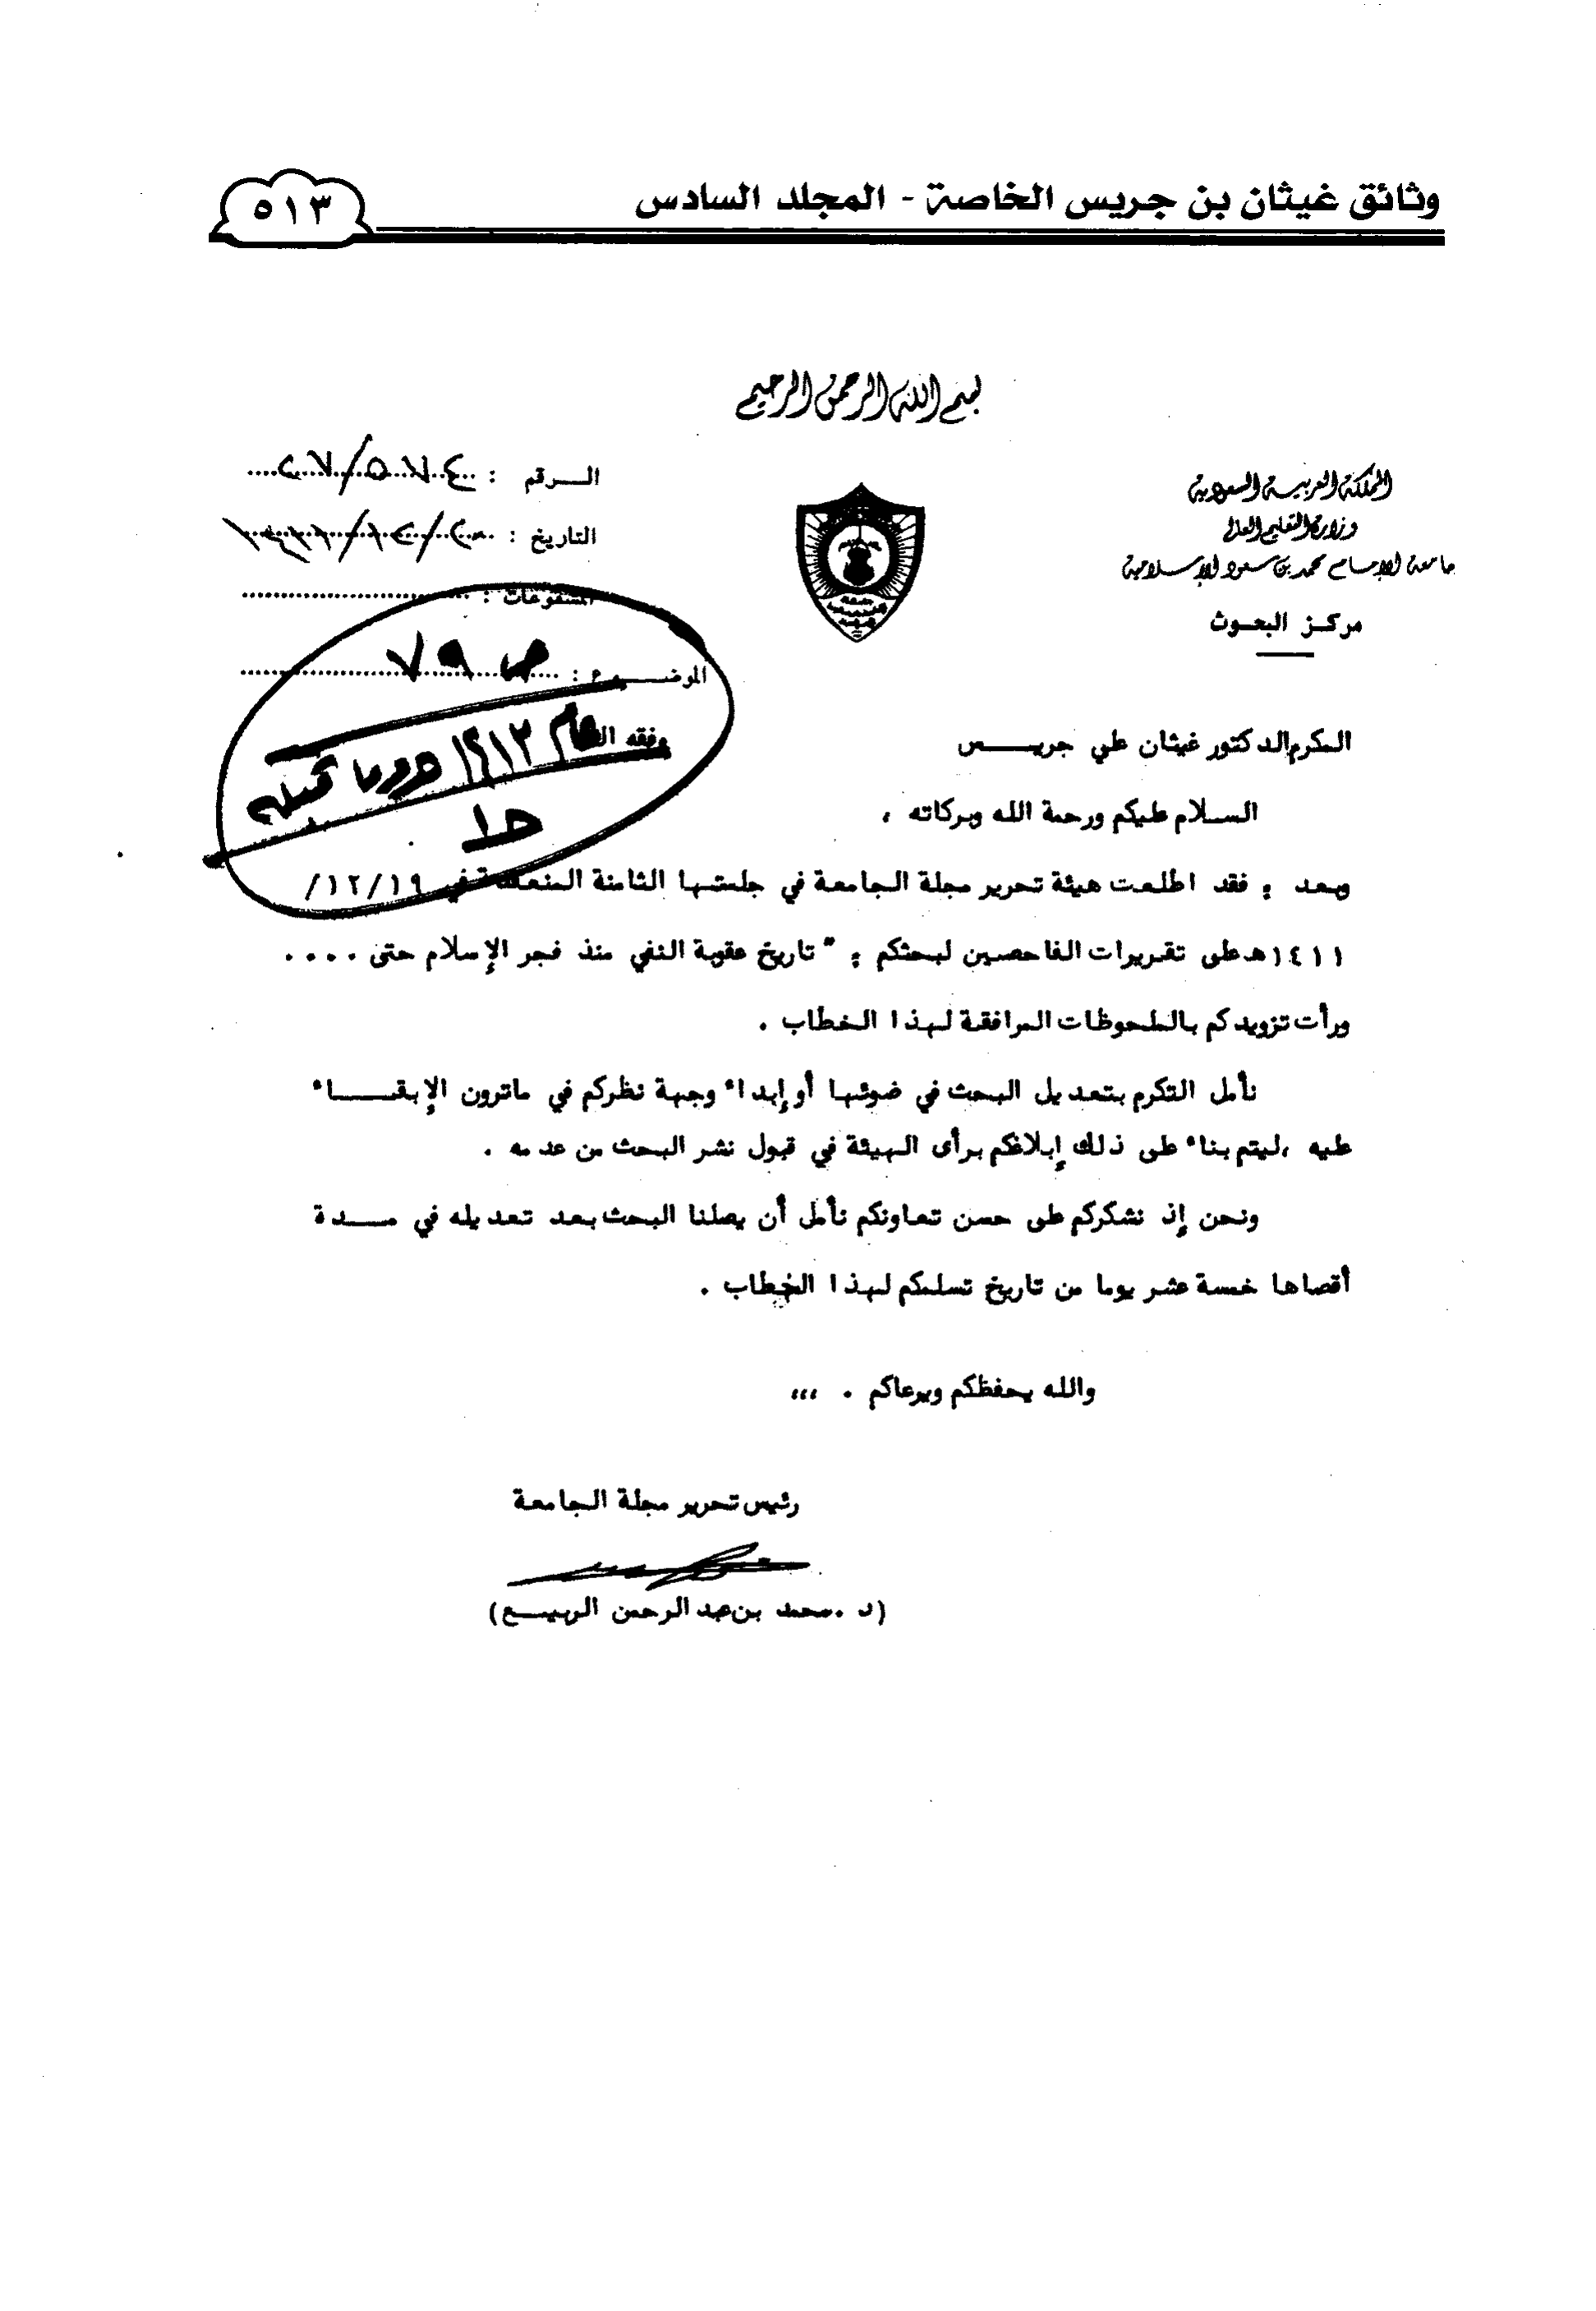 وثائق غيثان بن جريس الخاصة - المجلد السادس
٥١٣
بسم الله الرحمن الرحيم
المملكة العربية السعودية
وزارة التعليم العالي
جامعة الإمام محمد بن سعود الإسلامية
مركز البحوث
الرقم :
التاريخ :
المشفوعات :
الموضوع :
ص ٧٩
وفقه الله
عام ١٤١٢هـ وما قبله
ح١
المكرم الدكتور غيثان علي جريس
السلام عليكم ورحمة الله وبركاته ،
وبعد : فقد اطلعت هيئة تحرير مجلة الجامعة في جلستها الثامنة المنعقدة في ١٢/١٩/
١٤١١هـ على تقريرات الفاحصين لبحثكم : " تاريخ عقوبة النفي منذ فجر الإسلام حتى ....
ورأت تزويدكم بالملحوظات المرافقة لهذا الخطاب .
نأمل التكرم بتعديل البحث في ضوئها أو إبداء وجهة نظركم في ماترون الإبقاء
عليه ،ليتم بناء على ذلك إبلاغكم برأى الهيئة في قبول نشر البحث من عدمه .
ونحن إذ نشكركم على حسن تعاونكم نأمل أن يصلنا البحث بعد تعديله في مدة
أقصاها خمسة عشر يوما من تاريخ تسلمكم لهذا الخطاب .
والله يحفظكم ويرعاكم . ،،،
رئيس تحرير مجلة الجامعة
(د .محمد بن عبد الرحمن الربيع)